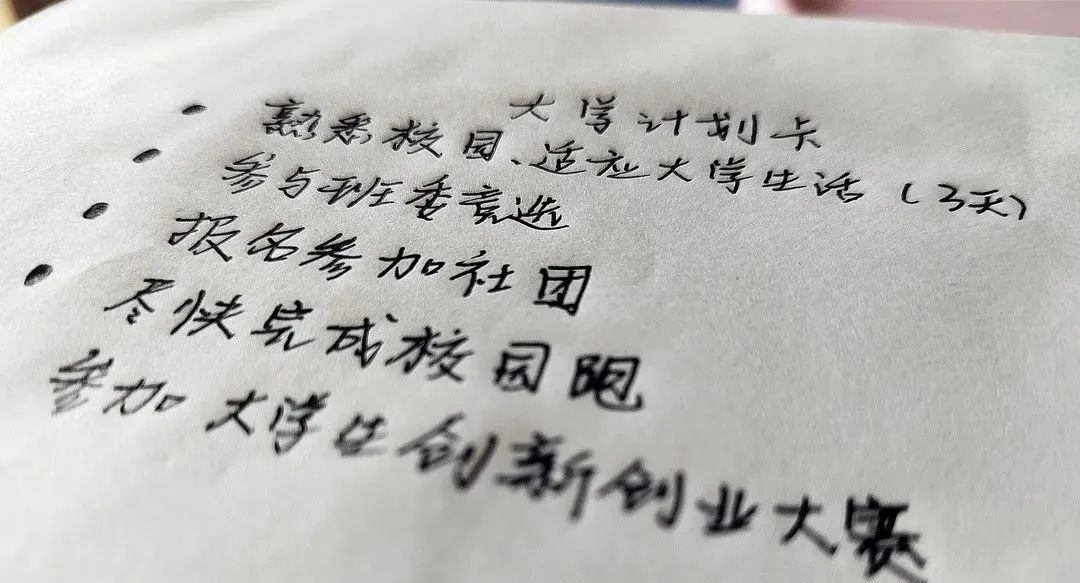 大学计划卡
• 熟悉校园、适应大学生活（3天）
• 参与班委竞选
• 报名参加社团
• 尽快完成校园跑
参加大学生创新创业大赛